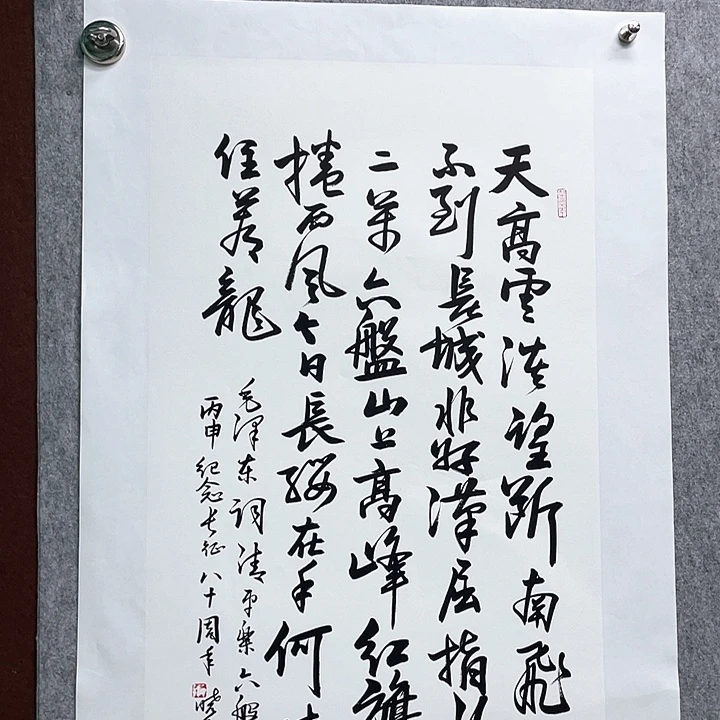 天高雲淡望斷南飛
不到長城非好漢屈指
二萬六盤山上高峰紅旗
捲西風今日長纓在手何
住蒼龍
毛澤東詞清平樂六盤
丙申紀念长征八十周年